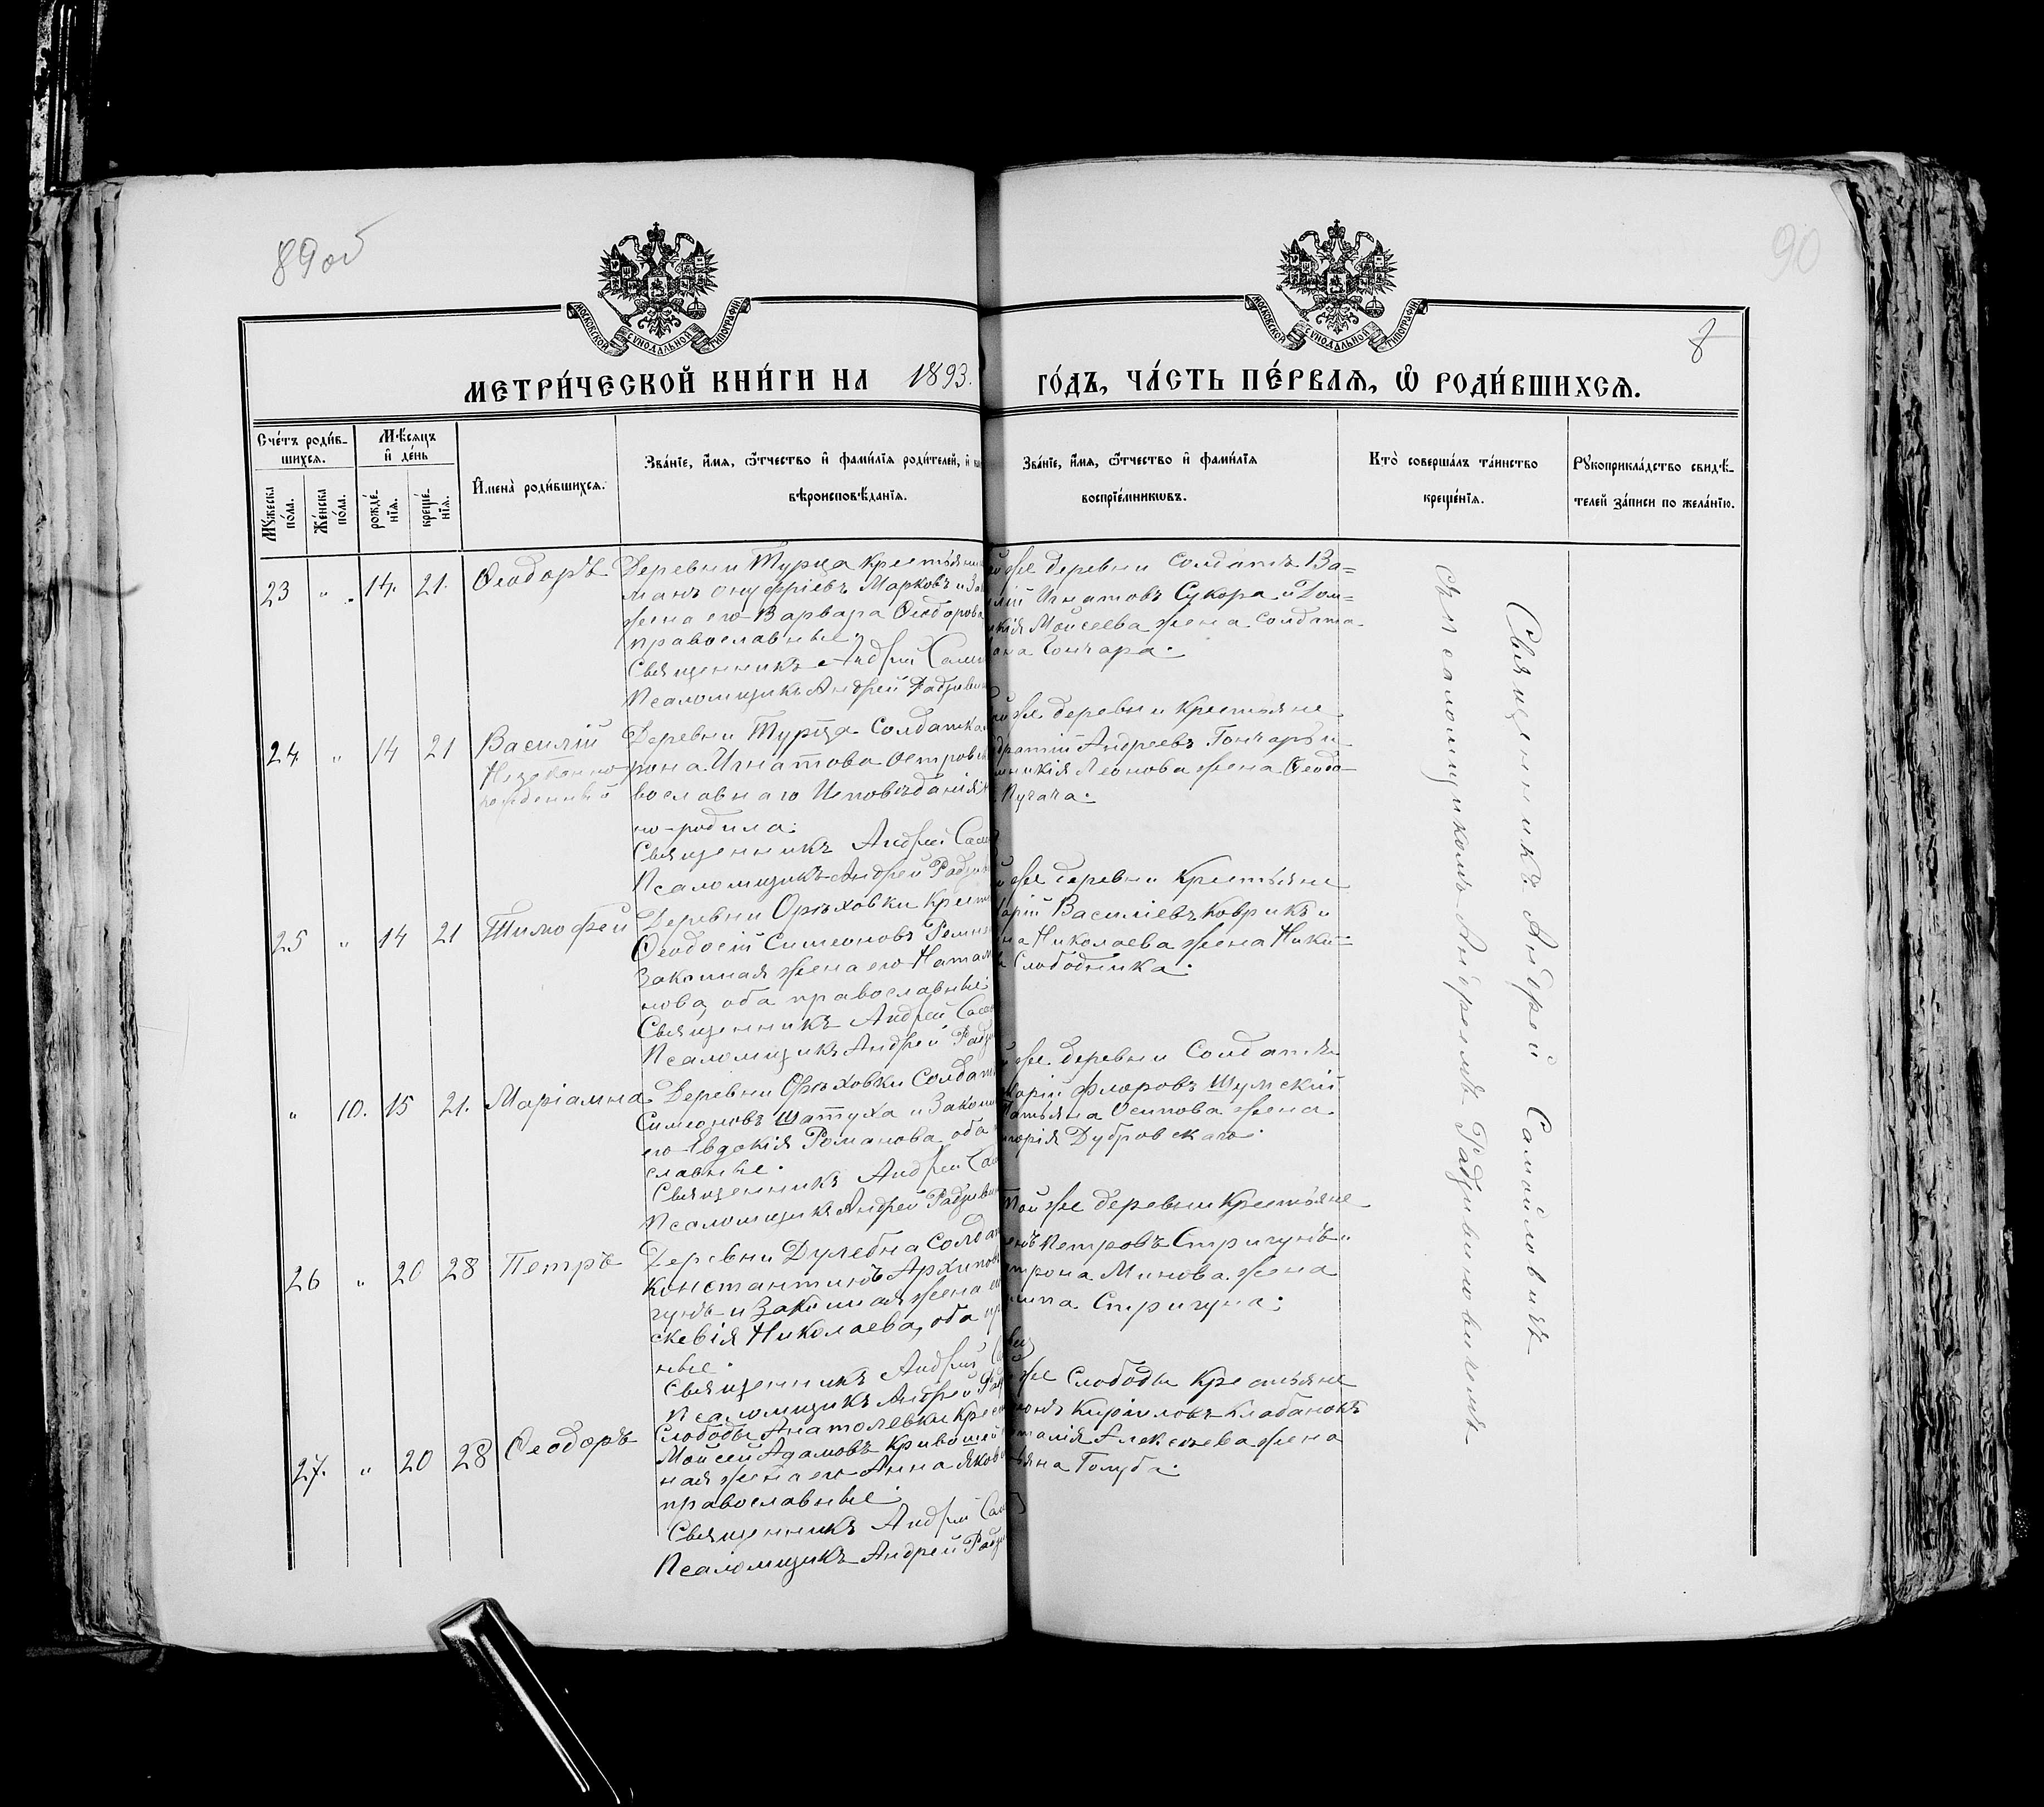 89об
90
8
МОСКОВСКОЙ СУНОДАЛЬНОЙ ТИПОГРАФІИ
МОСКОВСКОЙ СУНОДАЛЬНОЙ ТИПОГРАФІИ
МЕТРИ́ЧЕСКОЙ КНИ́ГИ НА 1893. ГО́ДЪ, ЧА́СТЬ ПЕ́РВАѦ, Ѡ҆ РОДИ́ВШИХСѦ.
Сче́тъ роди́в-
шихсѧ.
Мꙋ́жеска по́ла.
Же́нска по́ла.
Мѣ́сѧцъ
и҆ де́нь
рожде́-
нїѧ.
креще́-
нїѧ.
И҆мена̀ роди́вшихсѧ.
Зва́нїе, и҆́мѧ, ѻ҆́тчество и҆ фами́лїѧ роди́телей, и҆
вѣроисповѣ́данїѧ.
Зва́нїе, и҆́мѧ, ѻ҆́тчество и҆ фами́лїѧ
воспрїе́мникѡвъ.
Кто̀ соверша́лъ та́инство
креще́нїѧ.
Рꙋкоприкла́дство свидѣ́-
телей за́писи по жела́нїю.
23 " 14. 21. Ѳеодоръ
Деревни Турца крестьянин
Онуфріевъ Марковъ и За
жена его Варвара Ѳеодорова
православные.
Священникъ Андрей Само
Псаломщикъ Андрей Радзивин
же деревни солдатъ Ва=
илій Игнатовъ Сукора и Дом=
икія Моисеева жена солдата
Гончара.
24 " 14 21 Василій
Незаконно
рожденный
Деревни Турца солдатка
рона Игнатова Островс
вославнаго Исповѣданія
но-родила.
Священникъ Андрей Само
Псаломщикъ Андрей Радзив
же деревни крестьяне
Андреевъ Гончаръ и
никія Леонова жена Ѳеодо-
Пугача.
25 " 14 21 Тимофей
Деревни Орѣховки крест
Ѳеодосій Симеоновъ Ремиз
Законная жена его Натал
нова, оба православные
Священникъ Андрей Само
Псаломщикъ Андрей Радз
же деревни крестьяне
арій Василіевъ Коврикъ и
на Николаева жена Ники=
Слободника.
" 10. 15 21. Маріамна
Деревни Орѣховки солдат
Симеоновъ Шатуха и Закон
его Евдокія Романова, оба
славные.
Священникъ Андрей Само
Псаломщикъ Андрей Радзив
же деревни солдатъ
карій Флоровъ Шумскій
Татьяна Осипова жена
игорія Дубровскаго.
26 " 20 28 Петръ
Деревни Дулебна солдат
Константинъ Архипов
гунъ и Законная жена его
скевія Николаева, оба пр
ные.
Священникъ Андрей
Псаломщикъ Андрей Рад
той же деревни крестьяне
Петровъ Стригунъ и
трона Минова жена
Стригуна.
27. " 20 28 Ѳеодоръ
Слободы Анатолевки крес
Моисей Адамовъ Кривошей
ная жена его Анна Яков
православные.
Священникъ Андрей Само
Псаломщикъ Андрей Радз
же Слободы крестьяне
Кириловъ Клабановъ
аталія Алексѣева жена
Голуба.
Священникъ Андрей Самойловичъ
съ псаломщикомъ Андреемъ Радзивиновичемъ